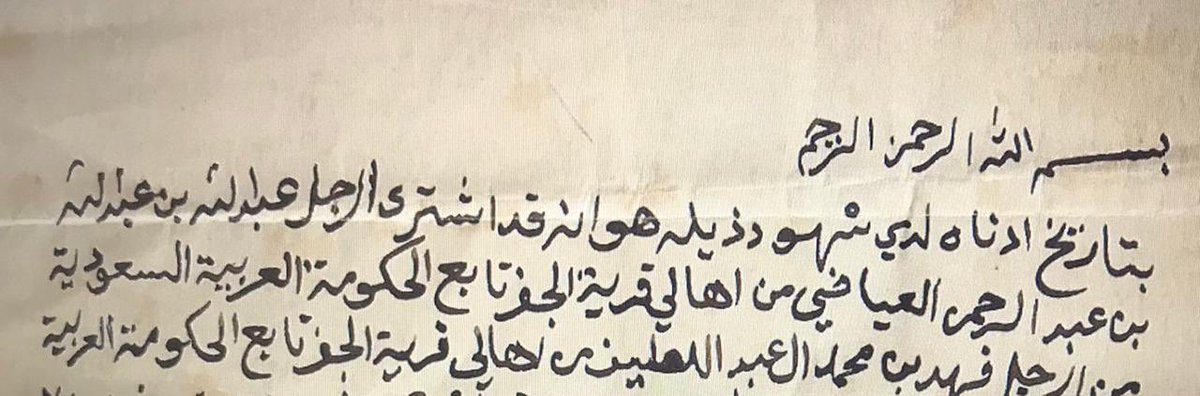 بسم الله الرحمن الرحيم
بتاريخ ادناه لدي شهود ذيله هو انه قد اشترى الرجل عبدالله بن عبدالله
بن عبد الرحمن العيافي من اهالي قرية الجفر تابع الحكومة العربية السعودية
من الرجل فهد بن محمد ال عبد اللطيف من اهالي قرية الجفر تابع الحكومة العربية